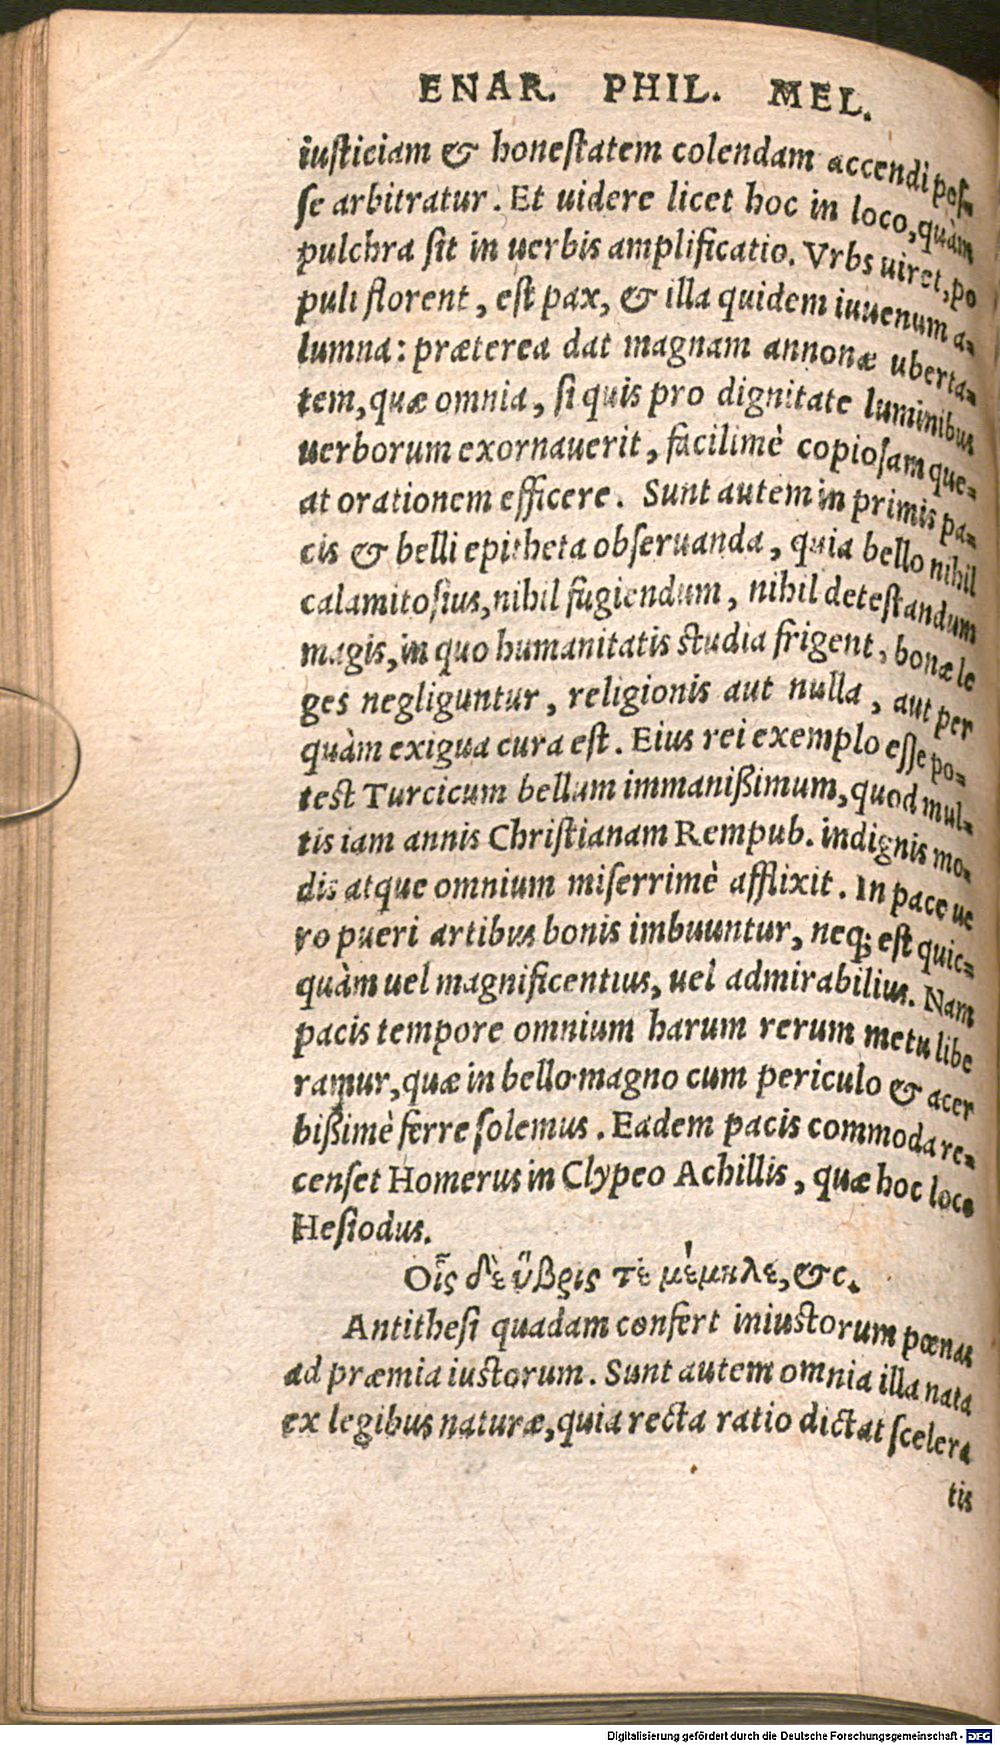 ENAR. PHIL. MEL.
iusticiam & honestatem colendam accendi pos-
se arbitratur. Et uidere licet hoc in loco, quàm
pulchra sit in uerbis amplificatio. Vrbs uiret, po
puli florent, est pax, & illa quidem iuuenum a-
lumna: præterea dat magnam annonæ uberta-
tem, quæ omnia, si quis pro dignitate luminibus
uerborum exornauerit, facilimè copiosam que-
at orationem efficere. Sunt autem in primis pa-
cis & belli epitheta obseruanda, quia bello nihil
calamitosius, nihil fugiendum, nihil detestandum
magis, in quo humanitatis studia frigent, bonæ le
ges negliguntur, religionis aut nulla, aut per
quàm exigua cura est. Eius rei exemplo esse po-
test Turcicum bellum immanißimum, quod mul-
tis iam annis Christianam Rempub. indignis mo-
dis atque omnium miserrimè afflixit. In pace ue
ro pueri artibus bonis imbuuntur, neq; est quic-
quàm uel magnificentius, uel admirabilius. Nam
pacis tempore omnium harum rerum metu libe
ramur, quæ in bello magno cum periculo & acer
bißimè ferre solemus. Eadem pacis commoda re-
censet Homerus in Clypeo Achillis, quæ hoc loco
Hesiodus.
Οἷς δ' ὕβρις τὲ μέμηλε, &c.
Antithesi quadam confert iniustorum pœnas
ad præmia iustorum. Sunt autem omnia illa nata
ex legibus naturæ, quia recta ratio dictat scelera
tis
Digitalisierung gefördert durch die Deutsche Forschungsgemeinschaft - DFG